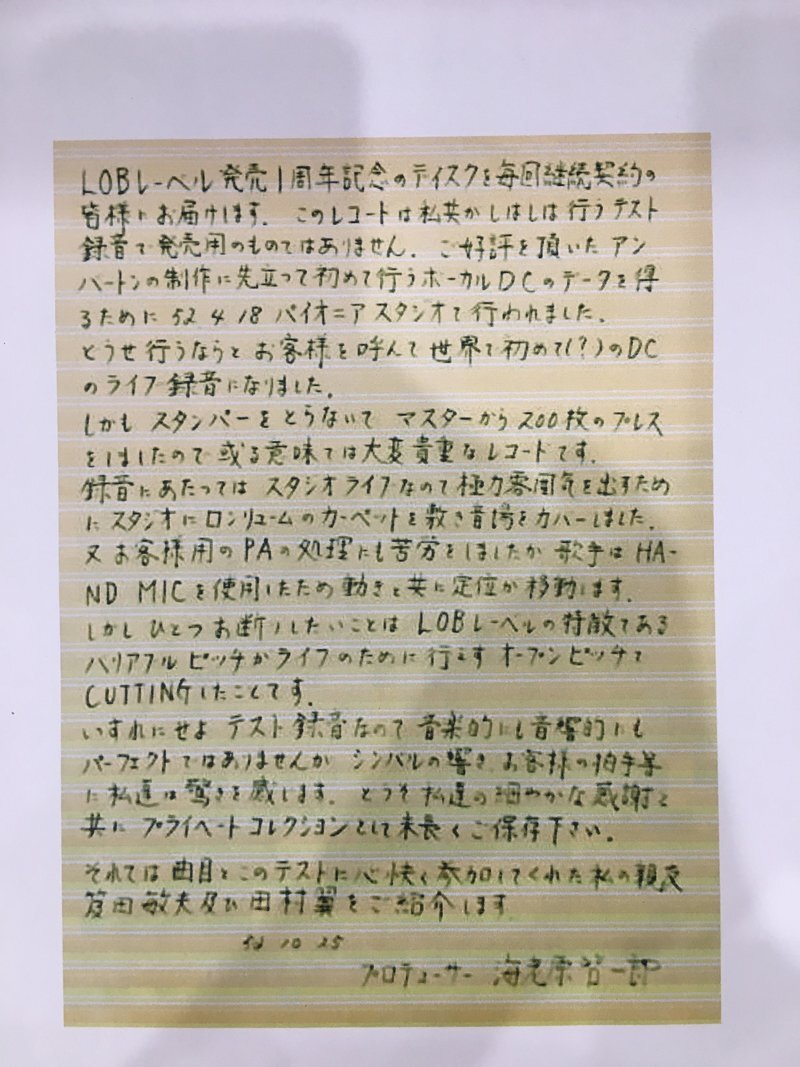 LOBレーベル発売1周年記念のディスクを毎回継続契約の
皆様にお届けします。このレコードは私共がしばしば行うテスト
録音で発売用のものではありません。ご好評を頂いた アン
バートンの制作に先立って初めて行うボーカルDCのデータを得
るために 52 4 18 パイオニアスタジオで行われました。
どうせ行うならと お客様を呼んで世界で初めて(?)のDC
のライブ録音になりました。
しかも スタンパーをとらないで マスターから200枚のプレス
をしましたので或る意味では大変貴重なレコードです。
録音にあたっては スタジオライブなので極力雰囲気を出すため
にスタジオにロンリュームのカーペットを敷き音場をカバーしました。
又お客様用のPAの処理にも苦労をしましたが歌手はHA-
ND MICを使用したため動きと共に定位が移動します。
しかしひとつお断りしたいことは LOBレーベルの特徴である
バリアブルピッチがライブのために行えず オープンピッチで
CUTTINGしたことです。
いずれにせよ テスト録音なので 音楽的にも音響的にも
パーフェクトではありませんが シンバルの響き、お客様の拍手等
に私達は驚きを感じます。どうぞ私達の細やかな感謝と
共に プライベートコレクションとして末長くご保存下さい。
それでは曲目とこのテストに心快く参加してくれた私の親友
笈田敏夫及び田村翼をご紹介します
52 10 25
プロデューサー 海老原 一郎